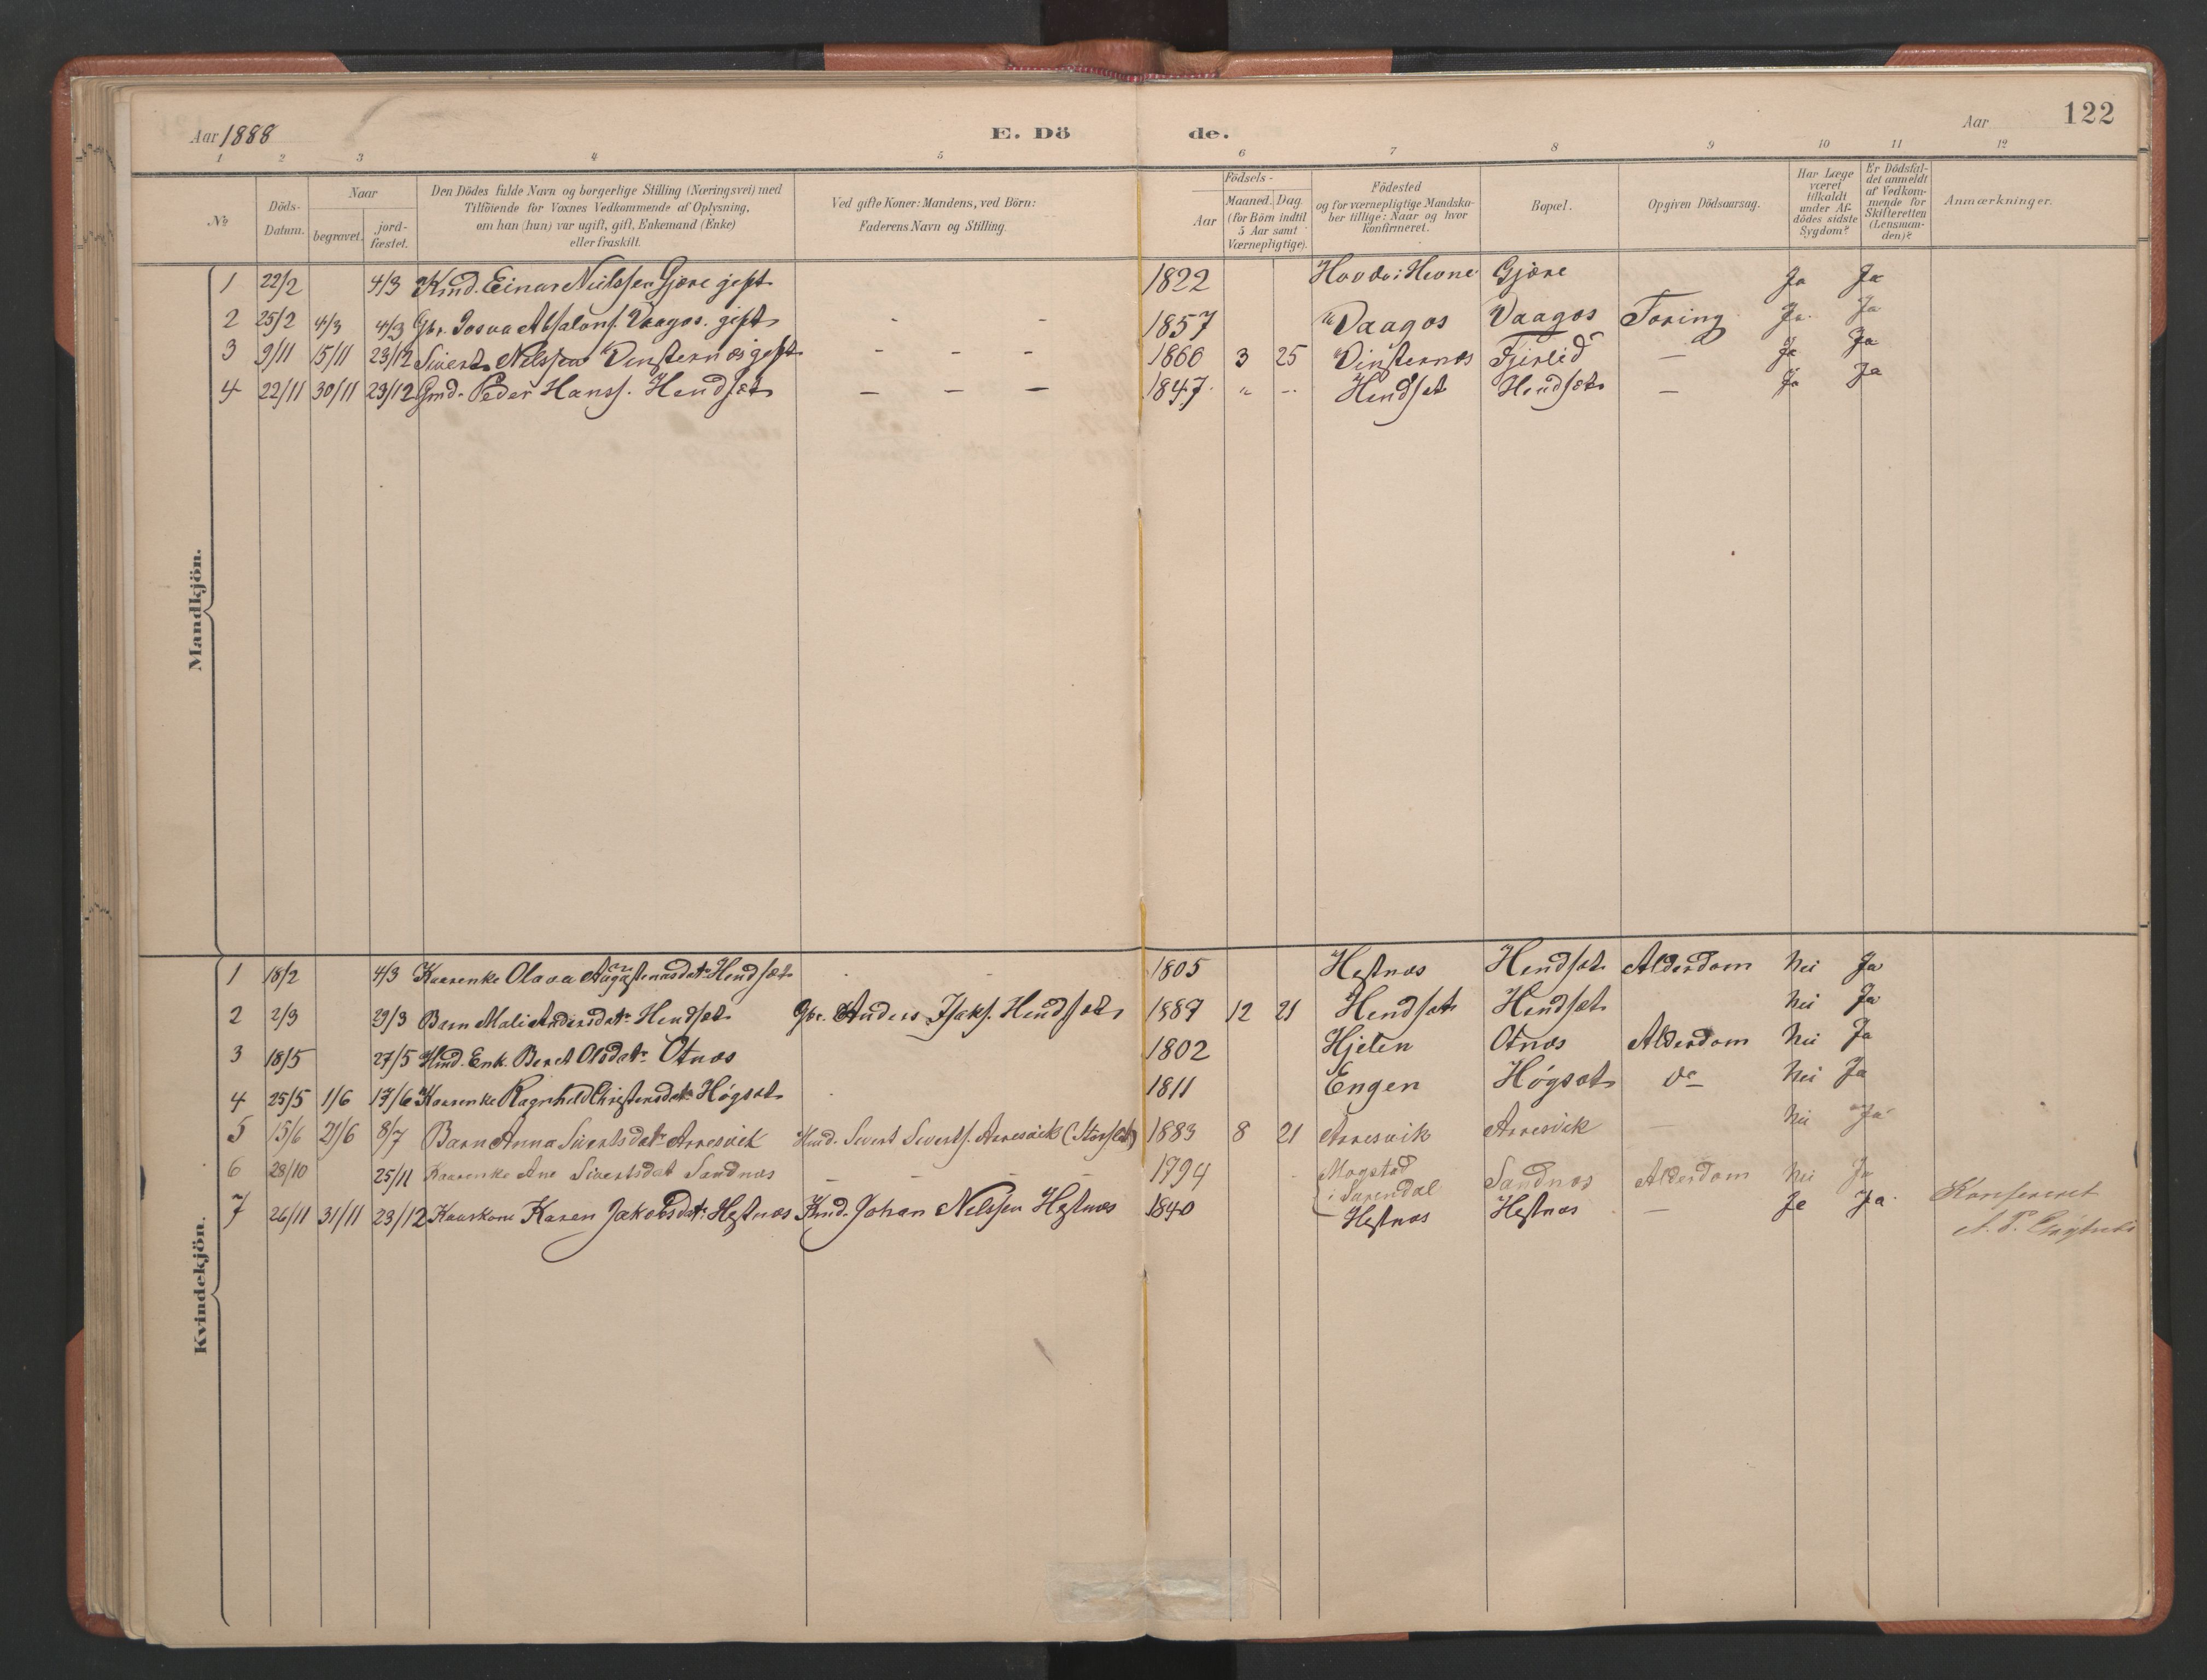 Aar 1888 E. Dö de. Aar 122
1 2 3 4 5 6 7 8 9 10 11 12
№
Döds-Datum.
Naar
begravet.
jord-fæstet.
Den Dödes fulde Navn og borgerlige Stilling (Næringsvei) med
Tilföiende for Voxnes Vedkommende af Oplysning,
om han (hun) var ugift, gift, Enkemand (Enke)
eller fraskilt.
Ved gifte Koner: Mandens, ved Börn:
Faderens Navn og Stilling.
Födsels-
Aar
Maaned. Dag.
(for Börn indtil
5 Aar samt
Værnepligtige).
Födested
og for værnepligtige Mandska-
ber tillige: Naar og hvor
konfirmeret.
Bopæl.
Opgiven Dödsaarsag.
Har Læge
været
tilkaldt
under Af-
dödes sidste
Sygdom?
Er Dödsfal-
det anmeldt
af Vedkom-
mende for
Skifteretten
(Lensman-
den)?
Anmærkninger.
Mandkjön.
1 22/2 4/3 Kmd. Einar Neilssen Gjære gift 1822 Hevne Gjøre Ja Ja
2 25/2 4/3 4/3 Gbr. Josva Absalons. Vaagos. gift - - 1857 Vaagos Vaagos Tæring Ja. Ja
3 9/11 15/11 23/12 Sivert Nelssen Vinsternæs gift - - - 1860 3 25 Vinsternæs Tjirlid — Ja Ja
4 22/11 30/11 23/12 Gmd. Peder Hanss. Hendset — — — 1847. " - Hendset Hendset — Ja Ja
Kvindekjön.
1 18/2 4/3 Kaarenke Olava Hendset 1805 Hestnæs Hendset Alderdom Nei Ja
2 2/3 29/3 Barn Mali Andersdatr Hendset Gbr. Anders Isaks. Hendset 1887 12 21 Hendset Hendset Nei Ja
3 18/5 27/5 Kmd. Enk. Beret Olsdatr Otnæs 1802 Hjelen Otnæs Alderdom Nei Ja
4 25/5 1/6 17/6 Kaarenke Ragnhild Christensdatr Högset 1811 Engen Högset do Nei Ja
5 15/6 21/6 8/7 Barn Anna Sivertsdatr Arresvik Kmd. Sivert Siverts. Arresvik (Storset) 1883 8 21 Arresvik Arresvik — Nei Ja
6 28/10 25/11 Kaarenke Ane Sivertsdat Sandnæs — — — 1794 Mogstad i Surendal Sandnæs Alderdom Nei Ja
7 26/11 31/11 23/12 Kaarkone Karen Jakobsdatr Hestnæs Kmd. Johan Nelssen Hestnæs 1840 Hestnæs Hestnæs — Ja Ja. Konfereret